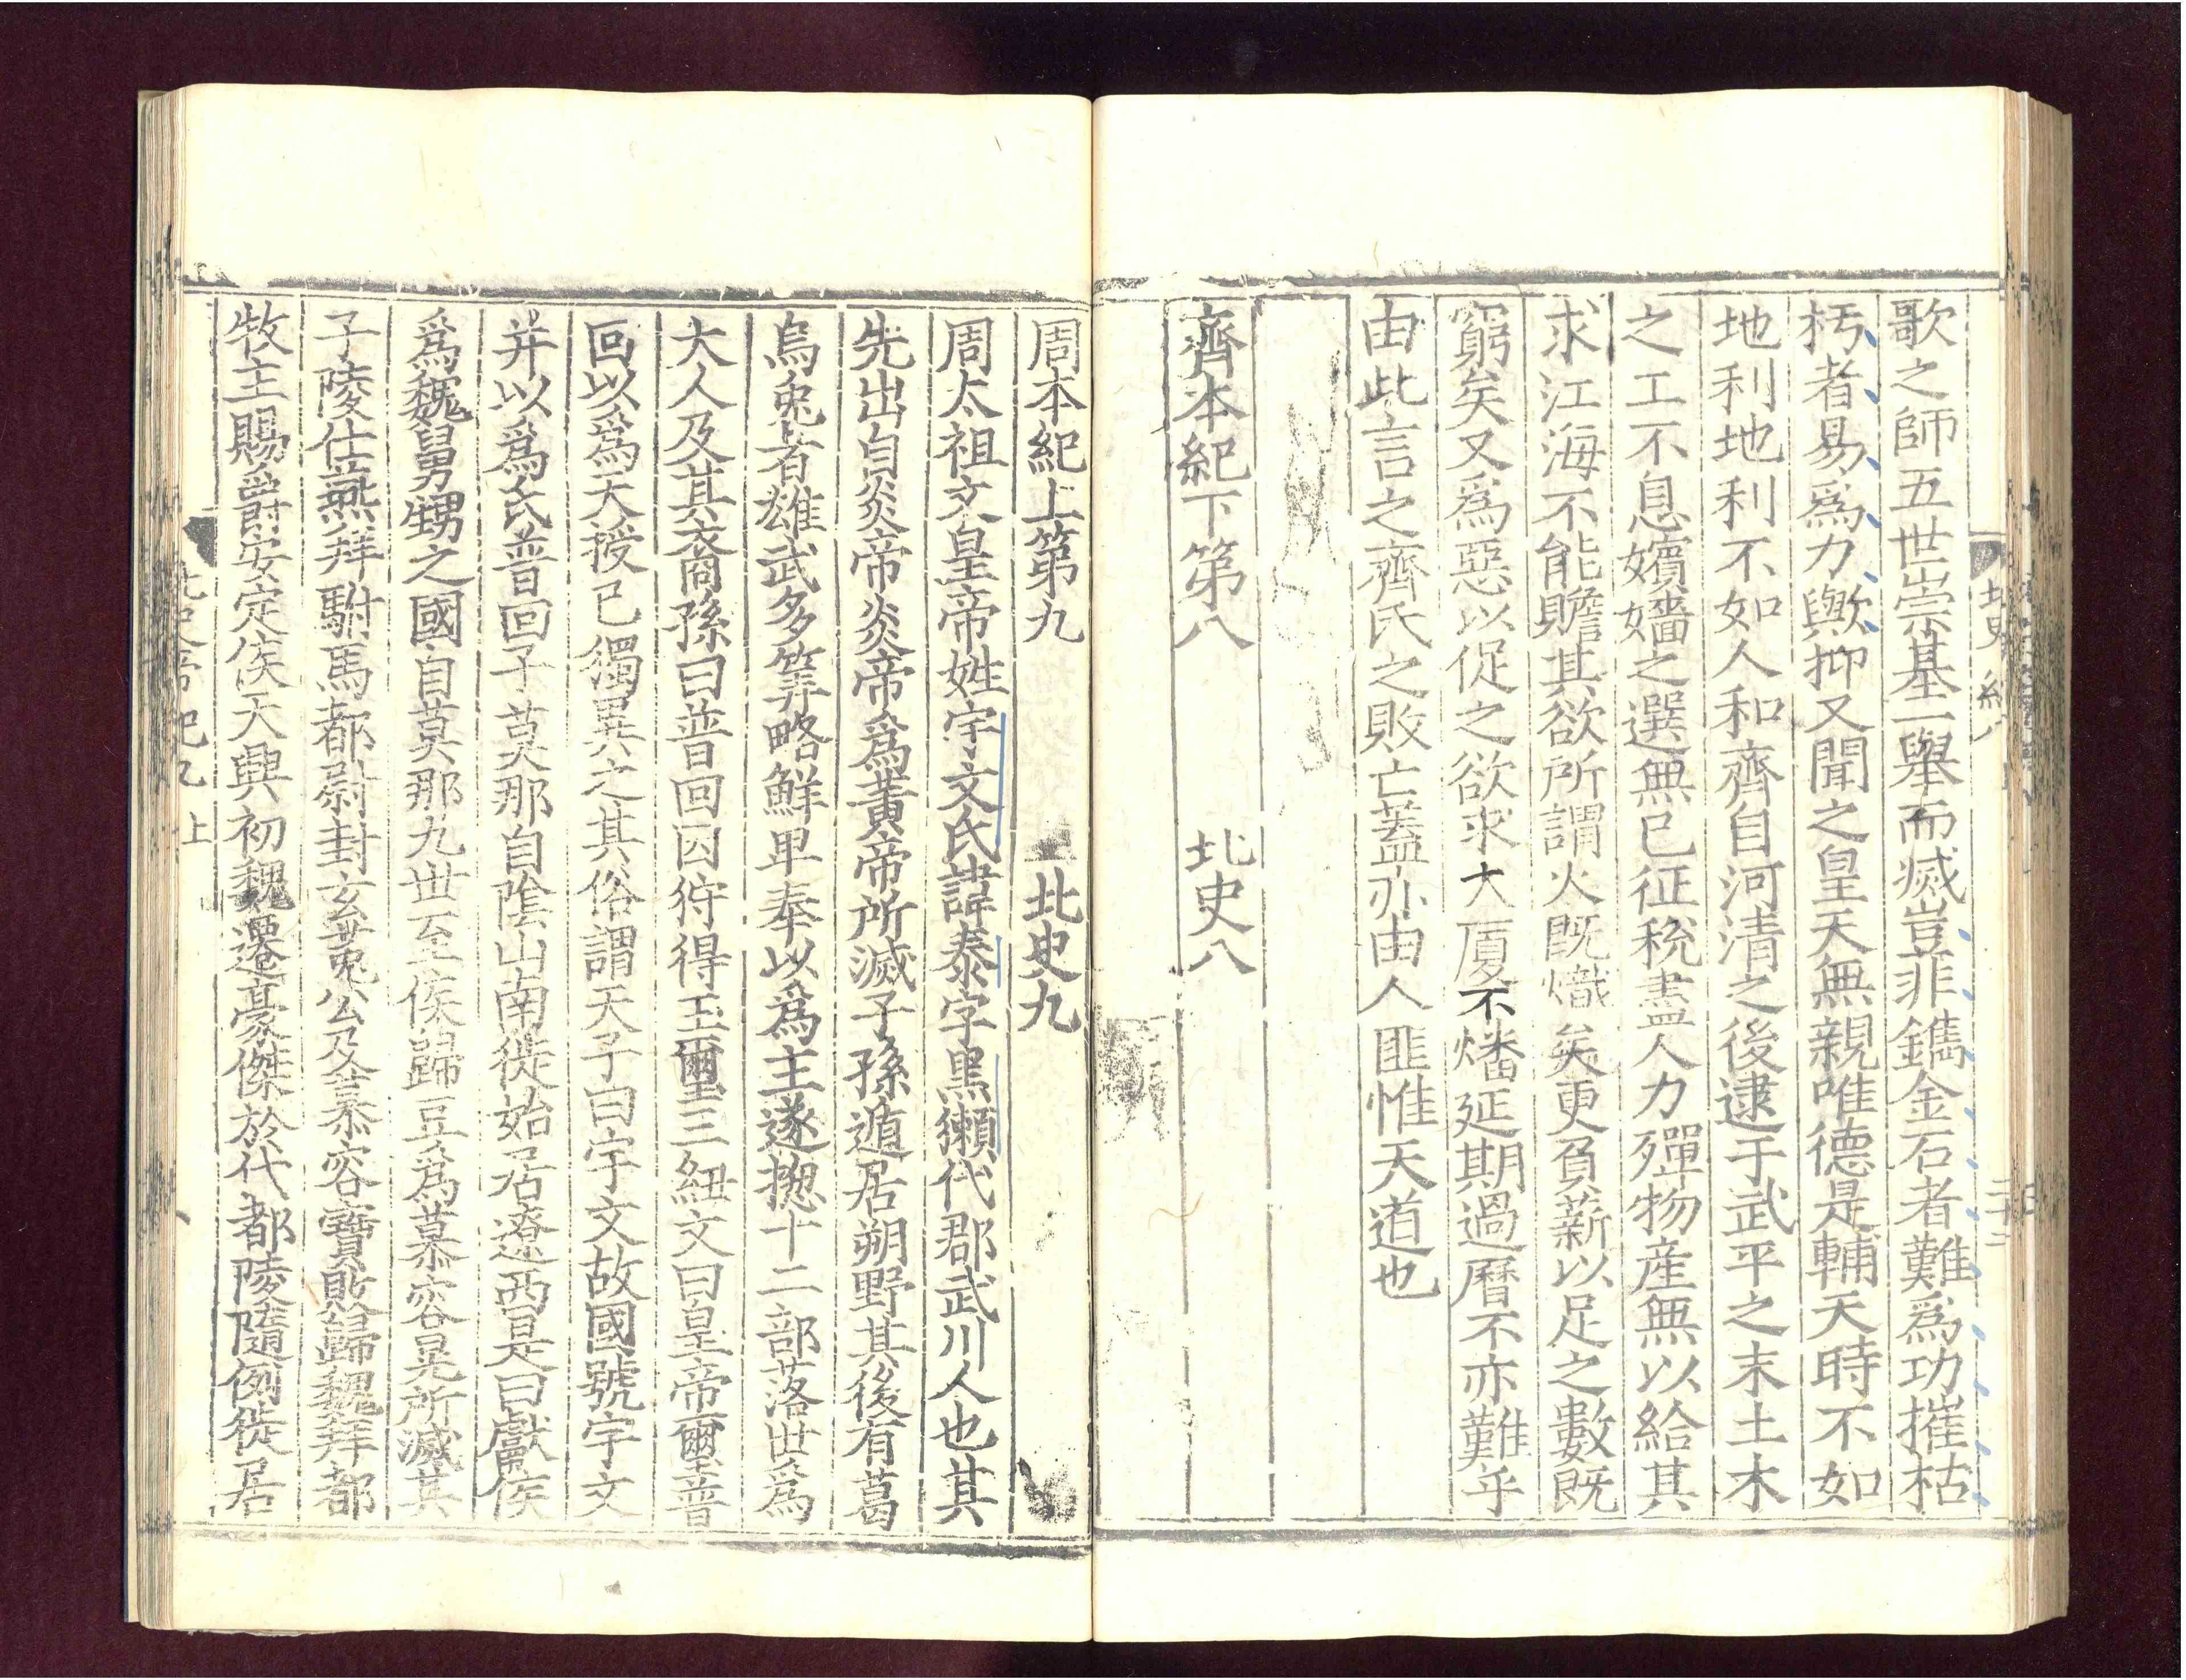 歌之師五世崇基一舉而滅豈非鐫金石者難爲功摧枯
朽者易爲力歟抑又聞之皇天無親唯德是輔天時不如
地利地利不如人和齊自河清之後逮于武平之末土木
之工不息嬪嬙之選無已征稅盡人力殫物産無以給其
求江海不能贍其欲所謂火既熾矣更負薪以足之數既
窮矣又爲惡以促之欲求大厦不燔延期過曆不亦難乎
由此言之齊氏之敗亡蓋亦由人匪惟天道也
齊本紀下第八 北史八
周本紀上第九 北史九
周太祖文皇帝姓宇文氏諱泰字黑獺代郡武川人也其
先出自炎帝炎帝爲黃帝所滅子孫遁居朔野其後有葛
烏兎者雄武多筭略鮮卑奉以爲主遂揔十二部落世爲
大人及其裔孫曰普回因狩得玉璽三紐文曰皇帝璽普
回以爲天授己獨異之其俗謂天子曰宇文故國號宇文
并以爲氏普回子莫那自陰山南徙始居遼西是曰獻侯
爲魏舅甥之國自莫那九世至侯歸豆爲慕容晃所滅其
子陵仕燕拜駙馬都尉封玄菟公及慕容寶敗歸魏拜都
牧主賜爵安定侯天興初魏遷豪傑於代都陵隨例徙居